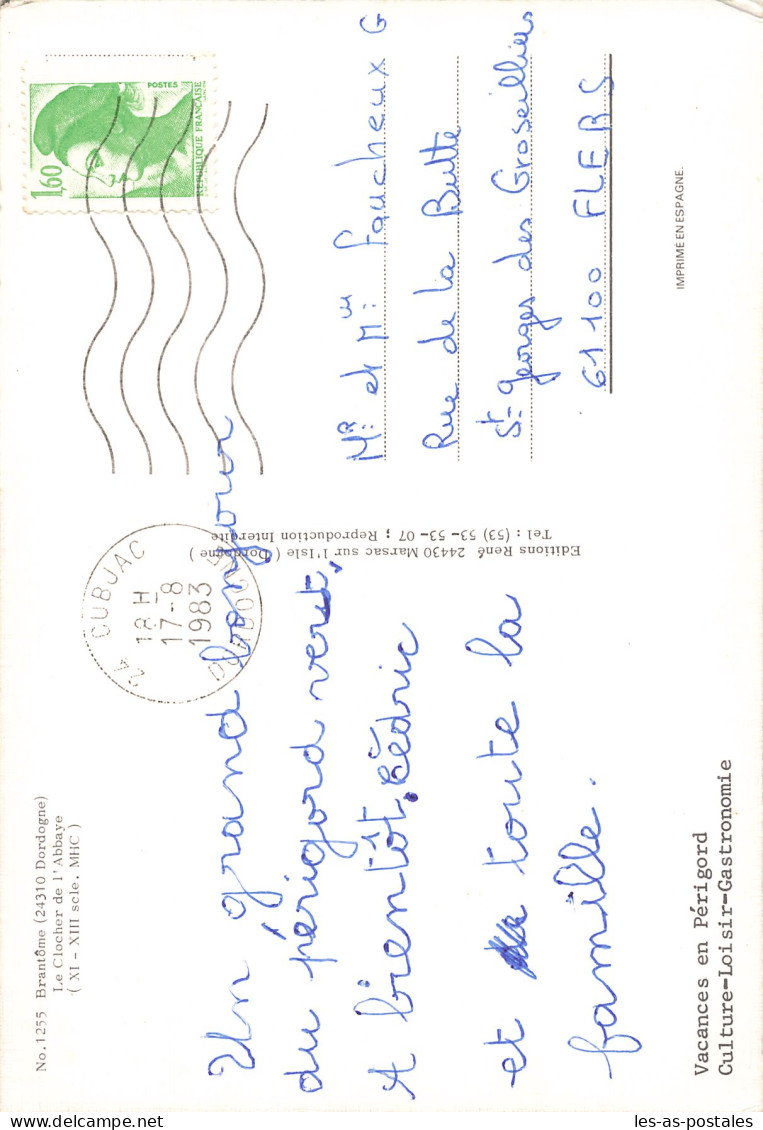 No. 1255 Brantôme (24310 Dordogne)
Le Clocher de l'Abbaye
( XI - XIII scle. MHC )
24 CUBJAC
18 H
17-8
1983
DORDOGNE
1,60
POSTES
REPUBLIQUE FRANÇAISE
Un grand bonjour
du périgord vert,
A bientôt. Cédric
et toute la
famille.
Editions René 24430 Marsac sur l'Isle ( Dordogne )
Tel : (53) 53-53-07 ; Reproduction Interdite
MR et Mm: Faucheux G
Rue de la Butte
St Georges des Groseilliers
61100 FLERS
IMPRIME EN ESPAGNE.
Vacances en Périgord
Culture-Loisir-Gastronomie
les-as-postales.com